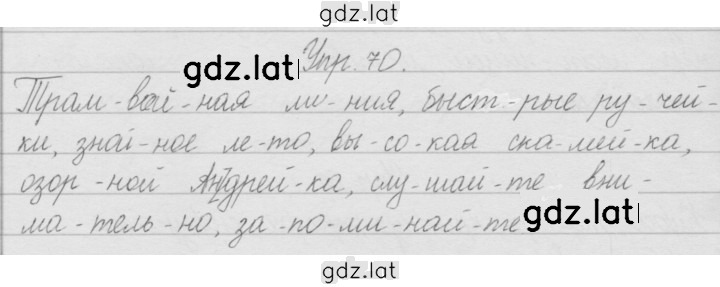 gdz.lat
gdz.lat Упр. 70.
Трам-вай-ная ли-ния, быст-рые ру-чей-
ки, зной-ное ле-то, вы-со-кая ска-мей-ка,
озор-ной Андрей-ка, слу-шай-те вни-
ма-тель-но, за-по-ми-най-те gdz.lat
gdz.lat